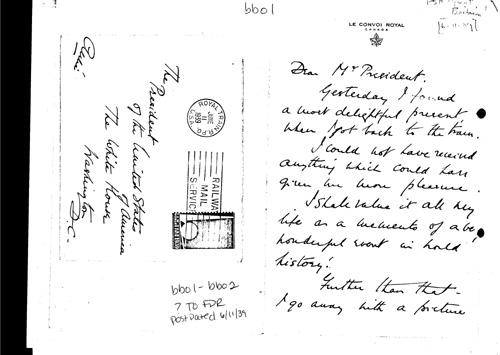 bb01
LE CONVOI ROYAL
CANADA
Dear Mr President.
Yesterday I found
a most delightful present,
when I got back to the train.
I could not have received
anything which could have
given me more pleasure.
I shall value it all my
life as a memento of a
wonderful event in world
history!
Further than that—
I go away with a picture
The
President
of the United States
of America
The White House
Washington
D.C.
ROYAL TRAIN R.P.O.
JUNE
11
1939
U.S.A.
RAILWAY
MAIL
SERVICE
bb01-bb02
? TO FDR
postdated 6/11/39